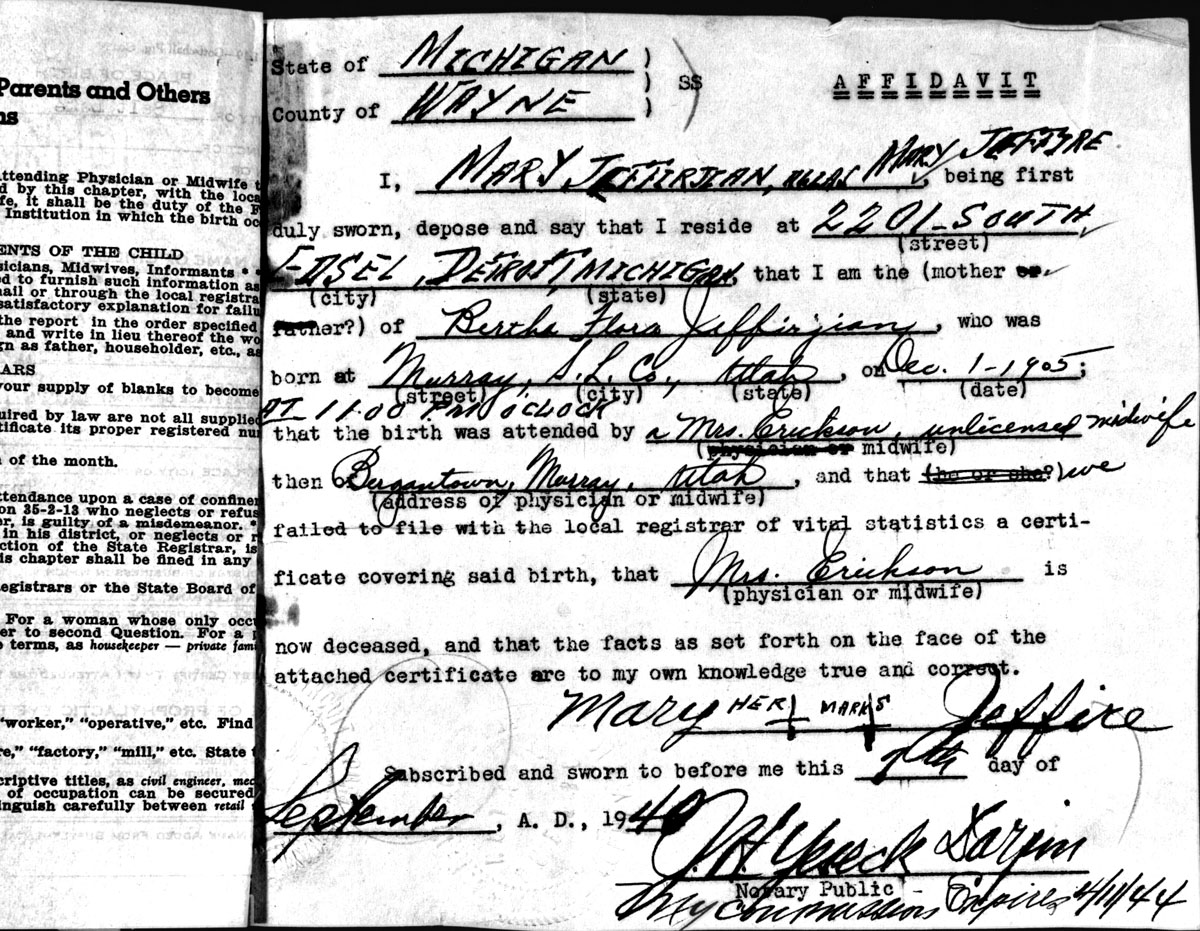 Parents and Others
ns
attending Physician or Midwife t
d by this chapter, with the loca
fe, it shall be the duty of the F
Institution in which the birth oc
ENTS OF THE CHILD
sicians, Midwives, Informants * *
ed to furnish such information as
nail or through the local registra
satisfactory explanation for failu
the report in the order specified
and write in lieu thereof the wo
gn as father, householder, etc., as
ARS
your supply of blanks to become
quired by law are not all supplie
tificate its proper registered nu
of the month.
ttendance upon a case of confine
on 35-2-13 who neglects or refus
er, is guilty of a misdemeanor. *
in his district, or neglects or r
ction of the State Registrar, is
is chapter shall be fined in any
egistrars or the State Board of
For a woman whose only occu
er to second Question. For a p
terms, as housekeeper — private fam
"worker," "operative," etc. Find
re," "factory," "mill," etc. State t
criptive titles, as civil engineer, mec
of occupation can be secured.
inguish carefully between retail
State of MICHIGAN )
) SS
County of WAYNE )
AFFIDAVIT
I, MARY JEFFIRJEAN, ALIAS MARY JEFFYRE, being first
duly sworn, depose and say that I reside at 2201-SOUTH,
(street)
EDSEL, DETROIT, MICHIGAN, that I am the (mother or
(city) (state)
father?) of Bertha Flora Jeffirjian, who was
born at Murray, S.L. Co., Utah, on Dec. 1-1905;
(street) (city) (state) (date)
AT 11:00 PM O'CLOCK
that the birth was attended by a Mrs. Erickson, unlicensed midwife
(physician or midwife)
then Bergantown, Murray, Utah, and that (he or she?) we
(address of physician or midwife)
failed to file with the local registrar of vital statistics a certi-
ficate covering said birth, that Mrs. Erickson is
(physician or midwife)
now deceased, and that the facts as set forth on the face of the
attached certificate are to my own knowledge true and correct.
Mary HER MARKS Jeffire
Subscribed and sworn to before me this day of
September, A. D., 1940
Notary Public -
My Commission Expires 4/11/44